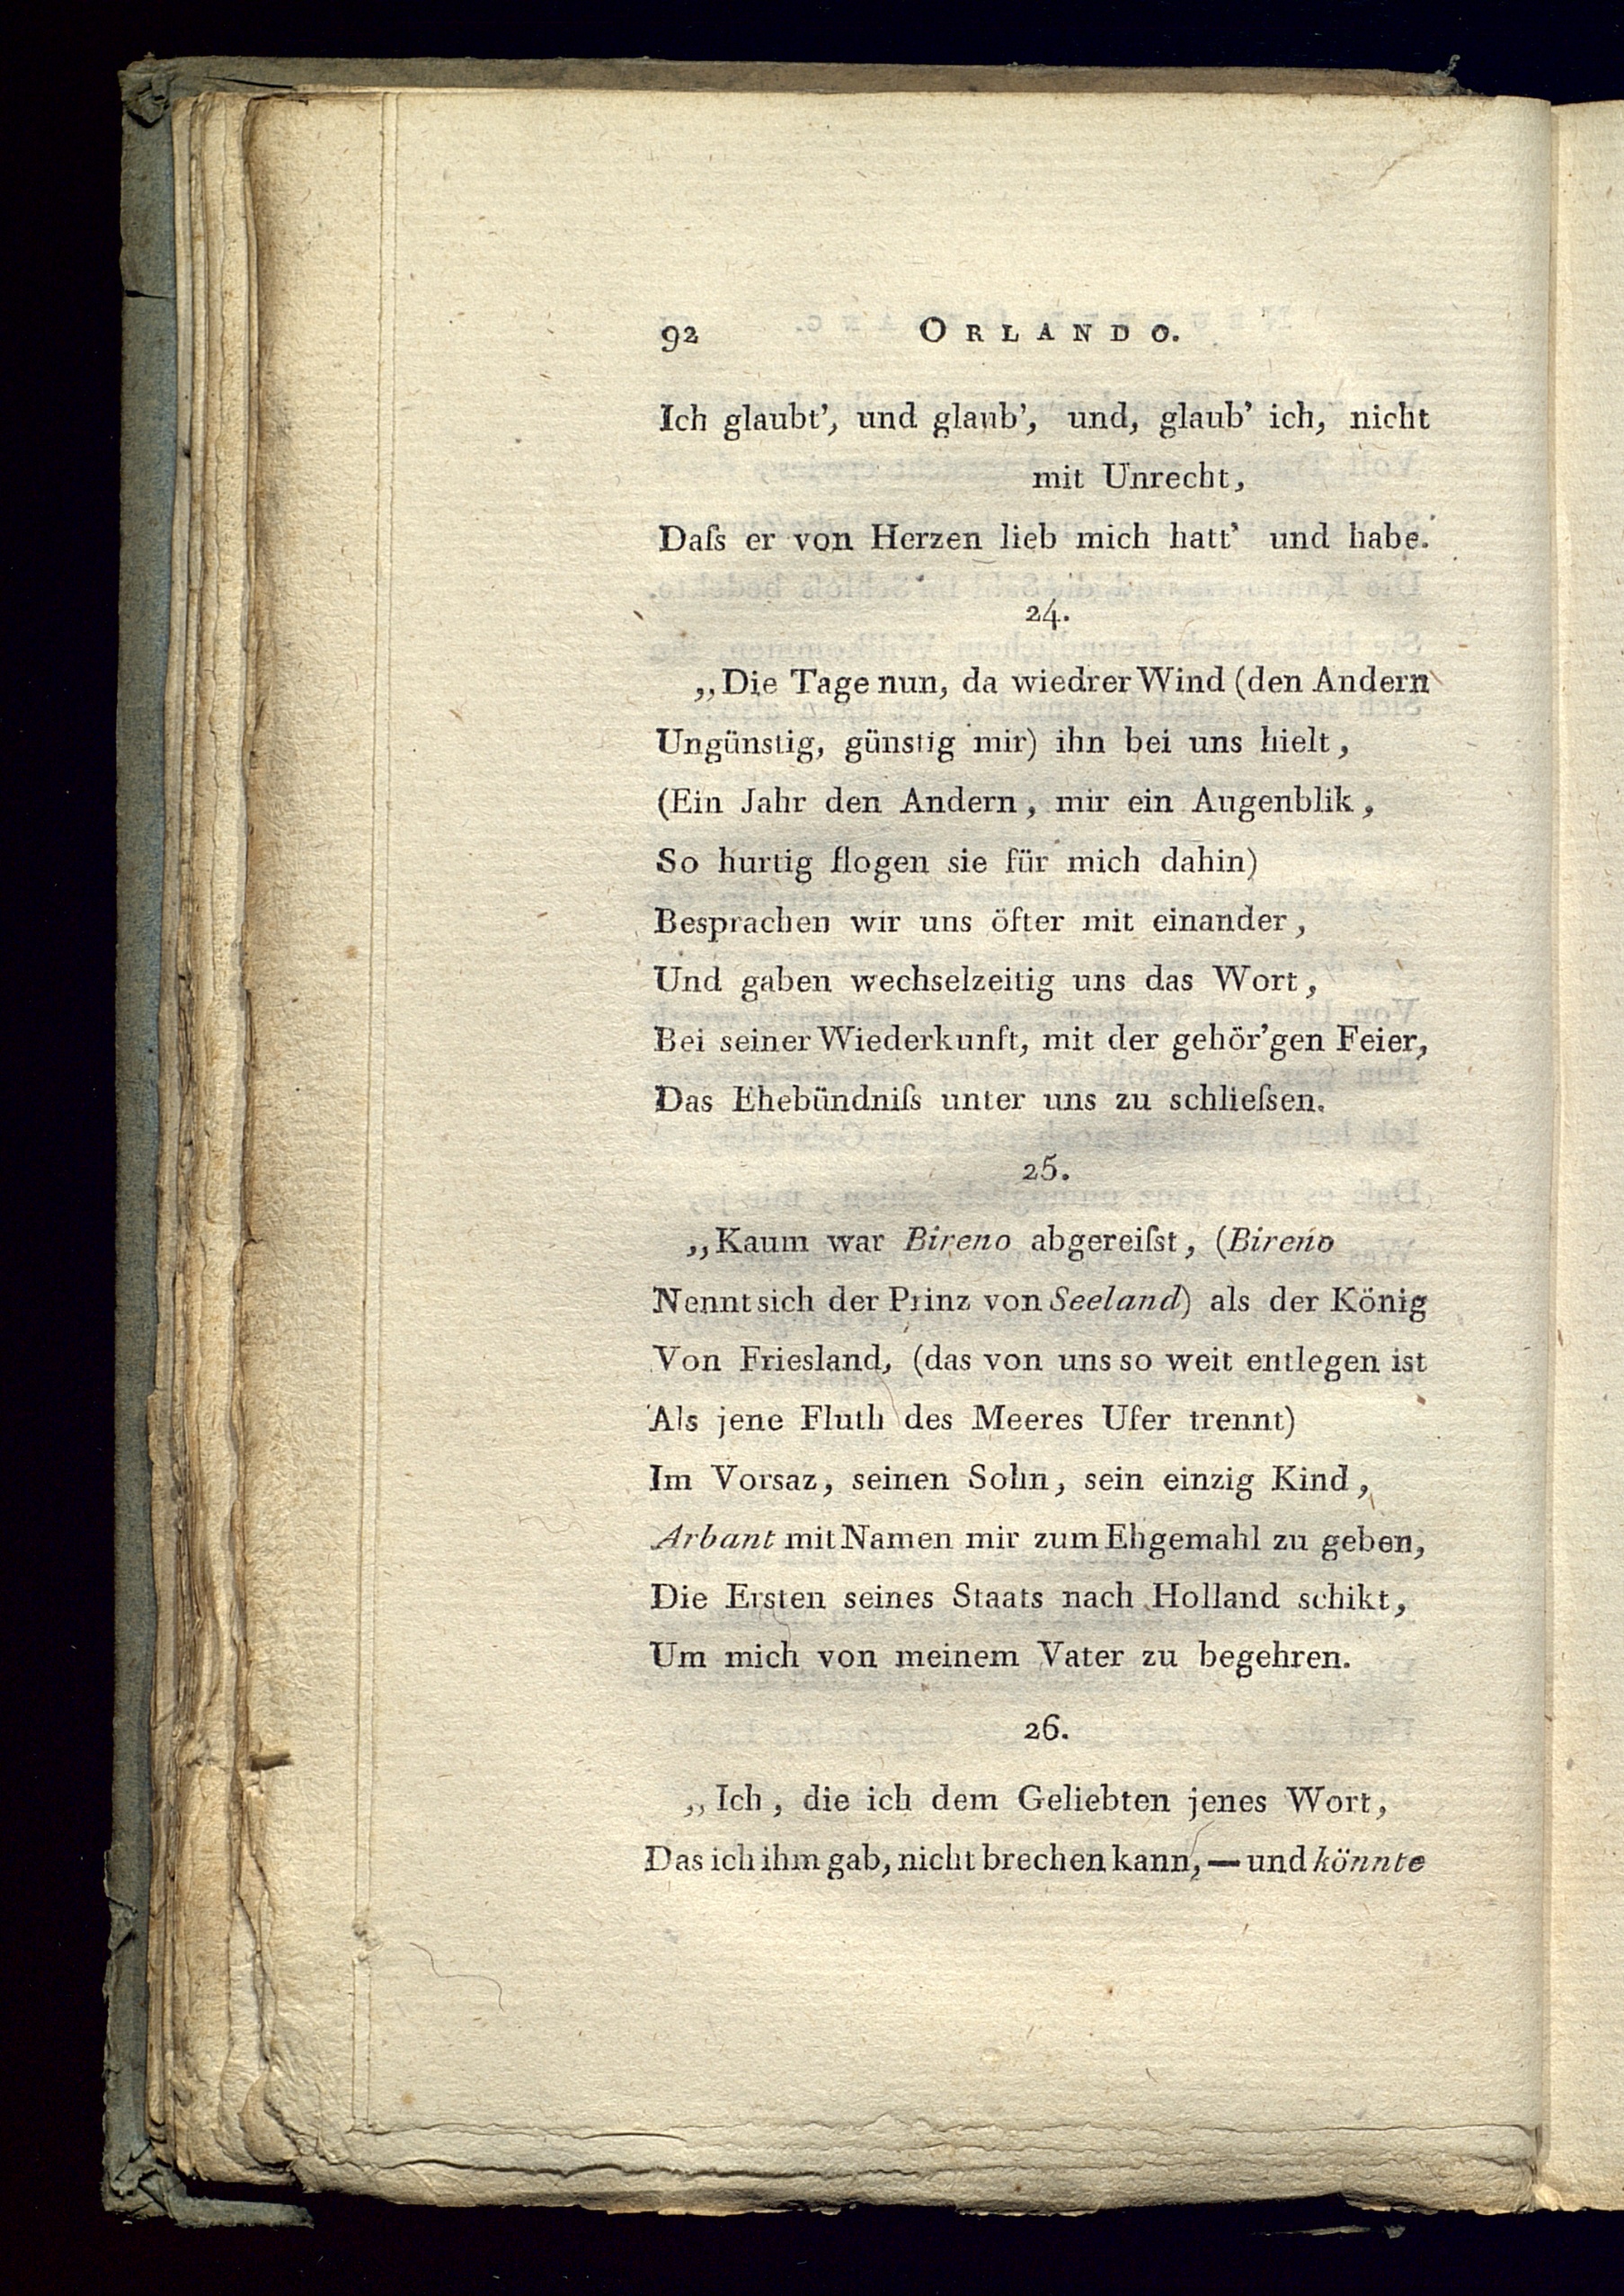 92 ORLANDO.
Ich glaubt', und glaub', und, glaub' ich, nicht
mit Unrecht,
Daſs er von Herzen lieb mich hatt' und habe.
24.
„Die Tage nun, da wiedrer Wind (den Andern
Ungünstig, günstig mir) ihn bei uns hielt,
(Ein Jahr den Andern, mir ein Augenblik,
So hurtig flogen sie für mich dahin)
Besprachen wir uns öfter mit einander,
Und gaben wechselzeitig uns das Wort,
Bei seiner Wiederkunft, mit der gehör'gen Feier,
Das Ehebündniſs unter uns zu schlieſsen.
25.
„Kaum war Bireno abgereiſst, (Bireno
Nennt sich der Prinz von Seeland) als der König
Von Friesland, (das von uns so weit entlegen ist
Als jene Fluth des Meeres Ufer trennt)
Im Vorsaz, seinen Sohn, sein einzig Kind,
Arbant mit Namen mir zum Ehgemahl zu geben,
Die Ersten seines Staats nach Holland schikt,
Um mich von meinem Vater zu begehren.
26.
„Ich, die ich dem Geliebten jenes Wort,
Das ich ihm gab, nicht brechen kann, — und könnte